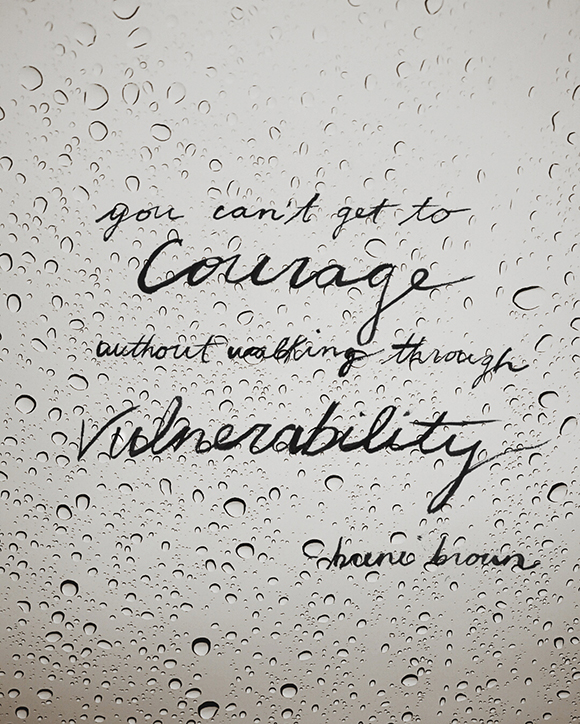 you can't get to
Courage
without walking through
Vulnerability
brown